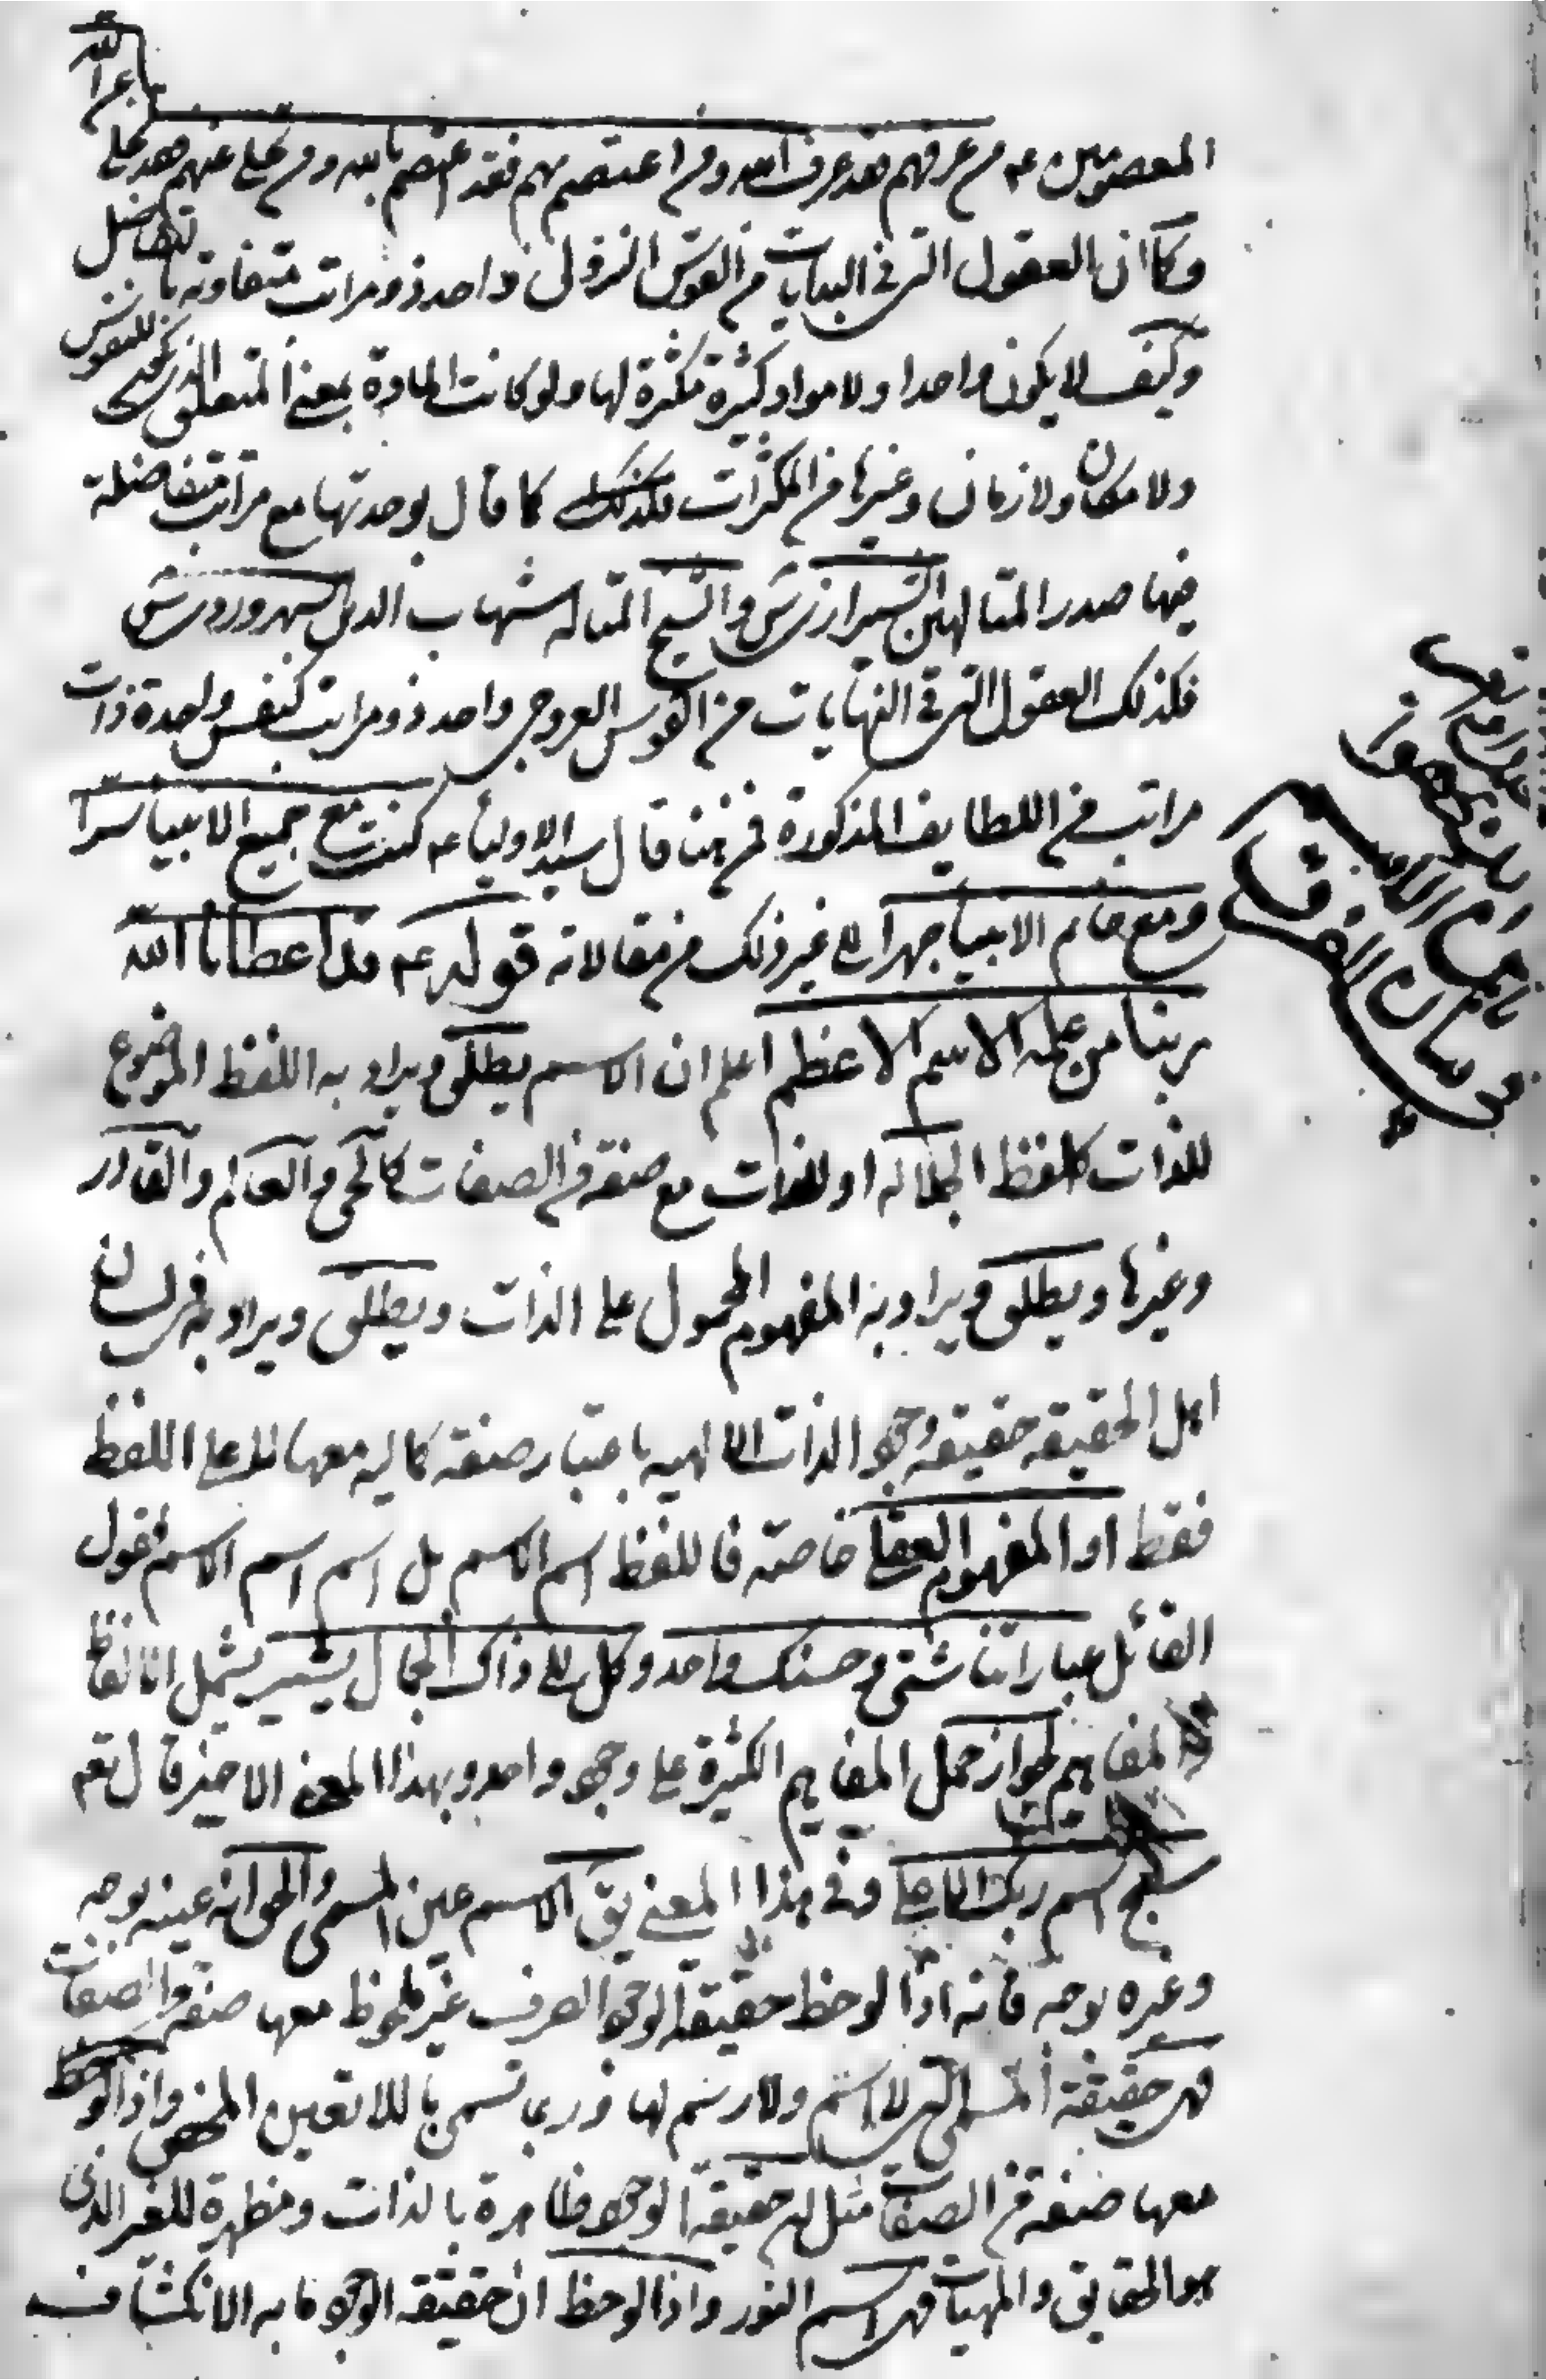 المعصومين عه من عرفهم فقد عرف الله ومن اعتصم بهم فقد اعتصم بالله ومن تخلى عنهم فقد تخلى
عن الله
وكما ان العقول التى فى البدايات من القوس النزولى واحد ذو مراتب متفاوته بالتفاضل
وكيف لا يكون واحدا ولا مواد كثيرة مكثرة لها ولو كانت المادة بمعنى المتعلق الذى للنفوس
ولا مكان ولا زمان وغيرها من المكثرات كما قال بوحدتها مع مراتب متفاضلة
فيها صدر المتالهين الشيرازى والشيخ المتاله شهاب الدين السهروردى
فكذلك العقول التى فى النهايات من القوس العروجى واحد ذو مراتب كنفس واحدة ذات
مراتب من اللطايف المذكورة فمن هنا قال سيد الاولياء عه كنت مع جميع الانبيا سرا
ومع خاتم الانبيا جهرا الى غير ذلك من مقالاته قوله عه قد اعطانا الله
ربنا من علمه الاسم الاعظم اعلم ان الاسم يطلق ويراد به اللفظ الموضوع
للذات كلفظ الجلاله او للذات مع صفة من الصفات كالحى والعالم والقادر
وغيرها ويطلق ويراد به المفهوم المحمول على الذات ويطلق ويراد به فى لسان
اهل الحقيقه حقيقه وجود الذات الالهيه باعتبار صفة كماليه معها لا على اللفظ
فقط او المفهوم العقلى خاصة فاللفظ اسم الاسم بل اسم اسم الاسم فقول
القائل عباراتنا شتى وحسنك واحد وكل الى ذاك الجمال يشير يشمل الالفاظ
والمفاهيم لجواز حمل المفاهيم الكثيرة على وجود واحد وبهذا المعنى الاخير قال تعه
سبح اسم ربك الاعلى وفى هذا المعنى يق الاسم عين المسمى والحق انه عينه بوجه
وغيره بوجه فانه اذا لوحظ حقيقة الوجود الصرف غير ملحوظ معها صفة من الصفات
فهى حقيقة المسمى التى لا اسم ولا رسم لها وربما تسمى باللاتعين المحض واذا لوحظ
معها صفة من الصفات مثل ان حقيقة الوجود ظاهرة بالذات ومظهرة للغير الذى
هو الحقايق والمهيات فهى اسم النور واذا لوحظ ان حقيقة الوجود ما به الانكشاف